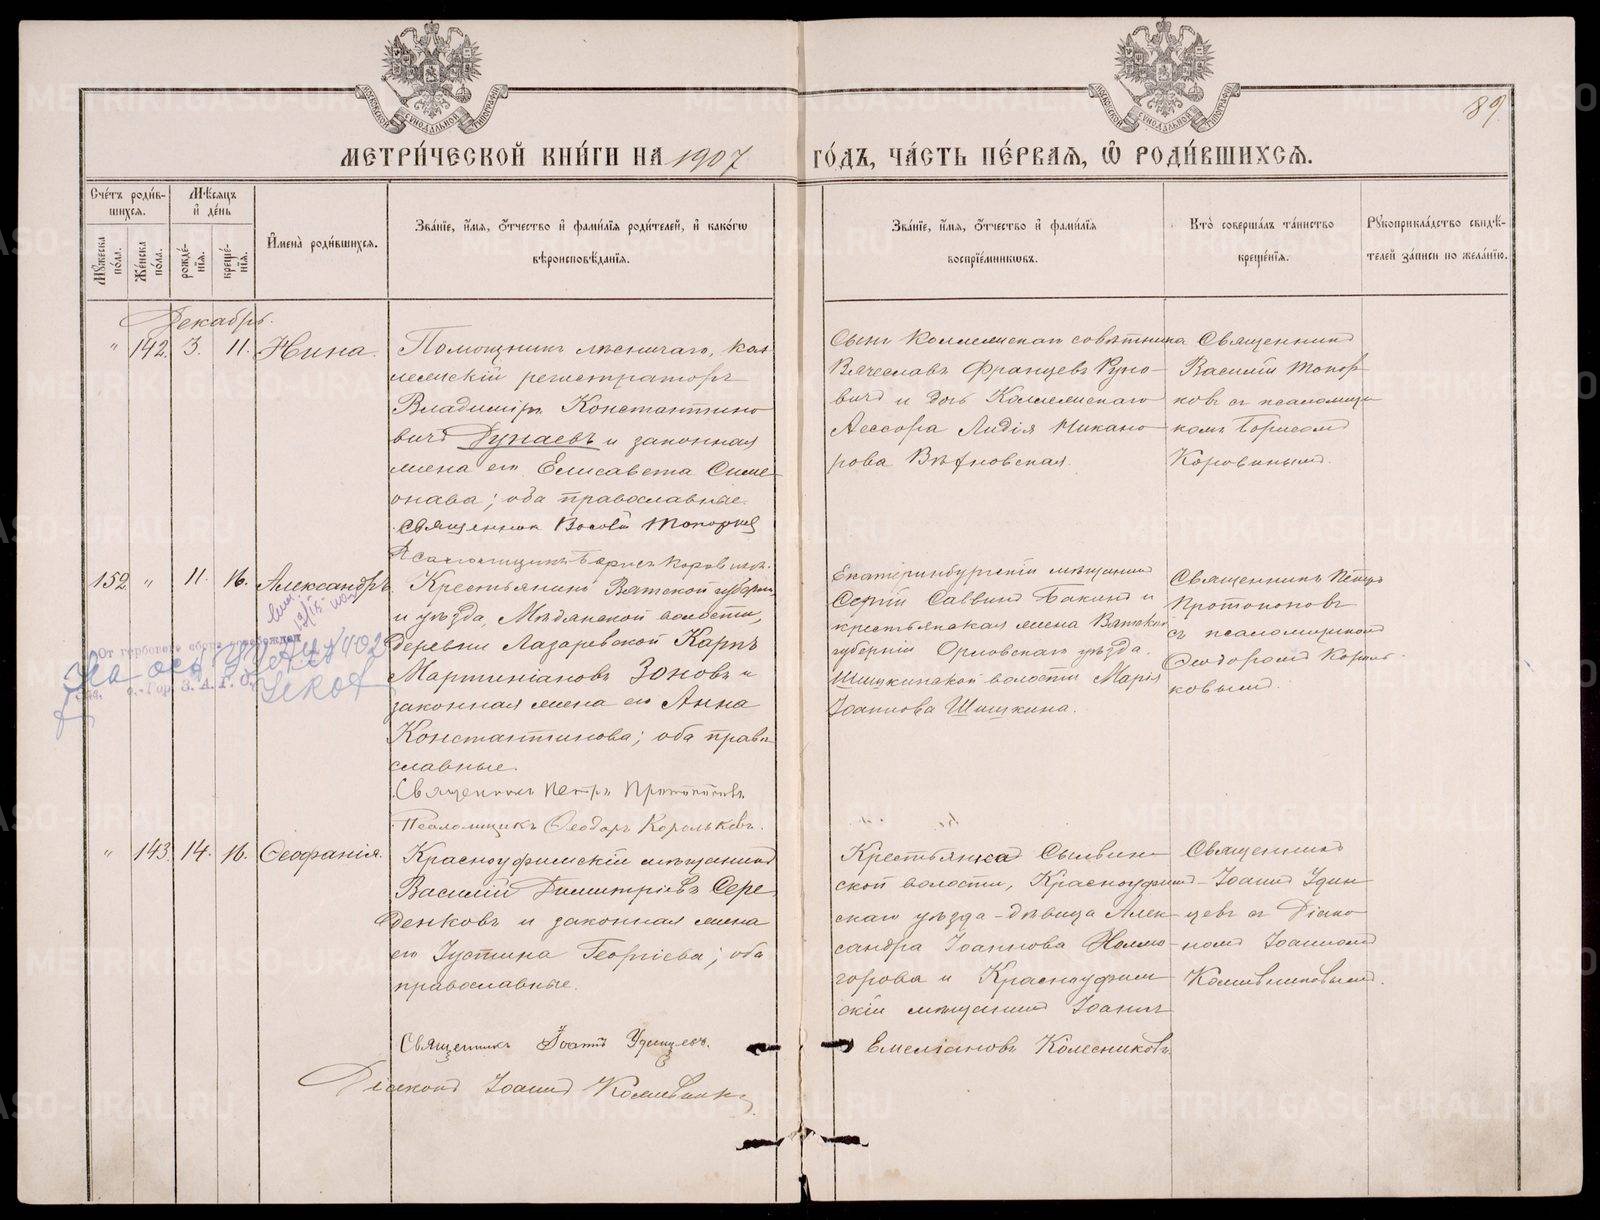 89
МЕТРИ́ЧЕСКОЙ КНИ́ГИ НА 1907 ГО́ДЪ, ЧА́СТЬ ПЕ́РВАЯ, Ѡ҆ РОДИ́ВШИХСЯ.
Сче́тъ роди́в-
шихся.
Мѣ́сяцъ
и҆ де́нь
Мꙋ́жеска
по́ла.
Же́нска
по́ла.
рожде́-
нїя.
креще́-
нїя.
И҆мена̀ роди́вшихся.
Зва́нїе, и҆́мя, ѻ҆́тчество и҆ фами́лїя роди́телей, и҆ како́гѡ
вѣроисповѣ́данїя.
Зва́нїе, и҆́мя, ѻ҆́тчество и҆ фами́лїя
воспрїе́мникѡвъ.
Кто̀ соверша́лъ та́инство
креще́нїя.
Рꙋкоприкла́дство свидѣ́-
телей за́писи по жела́нїю.
Декабрь.
" 142. 3. 11. Нина.
Помощникъ лѣсничаго, Кол-
лежскій регистраторъ
Владиміръ Константино-
вичъ Дунаевъ и законная
жена его Елисавета Симе-
онова; оба православные.
Священникъ Василій Топорковъ
Псаломщикъ Борисъ Коровинъ.
Сынъ Коллежскаго совѣтника
Вячеславъ Францевъ Руно-
вичъ и дочь Коллежскаго
Ассесора Лидія Никано-
рова
Священникъ
Василій Топор-
ковъ съ псаломщи-
комъ Борисомъ
Коровинымъ.
152 " 11. 16. Александръ.
Крестьянинъ Вятской губерніи
и уѣзда, Мѣдянской волости,
деревни Лазаревской Карпъ
Мартиніановъ Зоновъ и
законная жена его Анна
Константинова; оба право-
славные.
Священникъ Петръ Протопоповъ
Псаломщикъ Ѳеодоръ Корольковъ.
Екатеринбургскій мѣщанинъ
Сергій Саввинъ Бакинъ и
крестьянская жена Вятской
губерніи Орловскаго уѣзда.
Шишкинской волости Марія
Іоаннова Шишкина.
Священникъ Петръ
Протопоповъ
съ псаломщикомъ
Ѳеодоромъ Король-
ковымъ.
От гербового сбора освобожден
" 143. 14. 16. Ѳеофанія.
Красноуфимскій мѣщанинъ
Василій Димитріевъ Сере-
денковъ и законная жена
его Іустина Георгіева; оба
православные.
Священникъ Іоаннъ Удинцевъ.
Діаконъ Іоаннъ
Крестьянка Сылвин-
ской волости, Красноуфим-
скаго уѣзда - дѣвица Алек-
сандра Іоаннова Холмо-
горова и Красноуфим-
скій мѣщанинъ Іоаннъ
Емеліановъ Колесниковъ
Священникъ
Іоаннъ Удин-
цевъ съ Діако-
номъ Іоанномъ